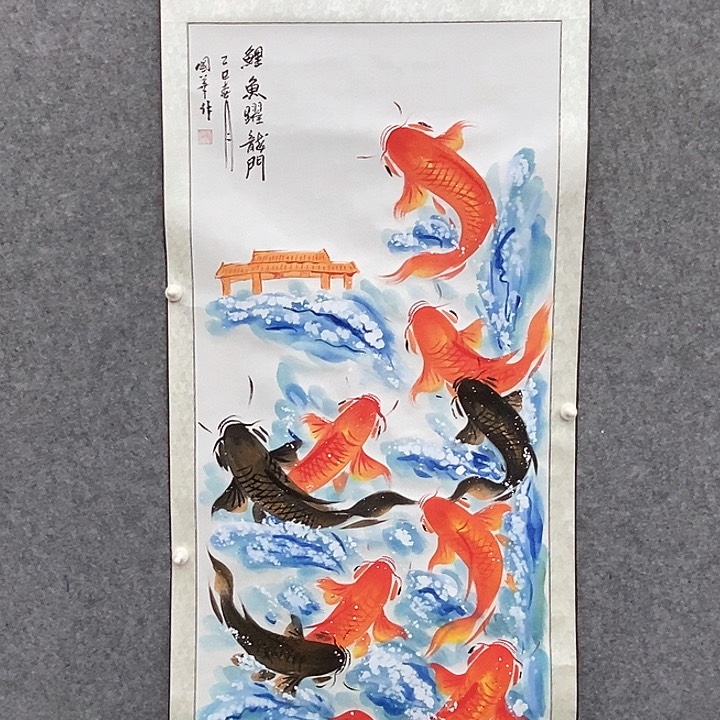 鯉魚躍龍門
己巳春
國華作